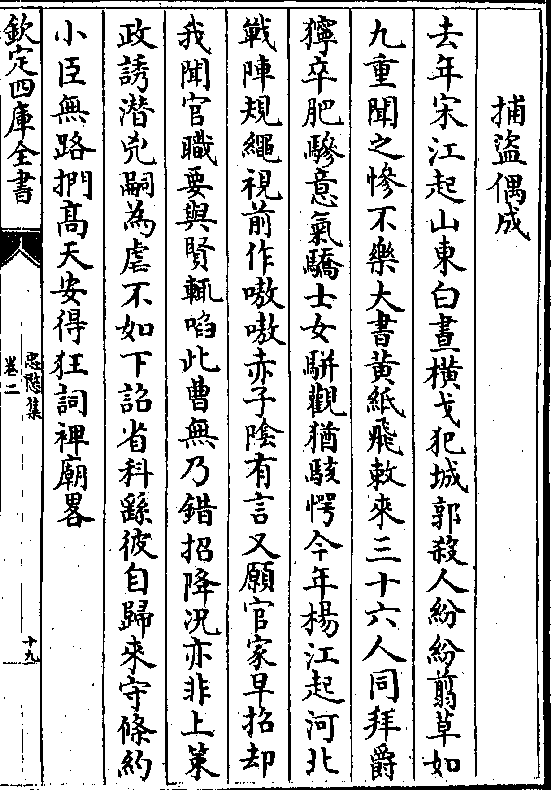 捕盜偶成
去年宋江起山東白晝橫戈犯城郭殺人紛紛翦草如
九重聞之慘不樂大書黃紙飛敕來三十六人同拜爵
獰卒肥驂意氣驕士女駢觀猶駭愕今年楊江起河北
戰陣規繩視前作嗷嗷赤子陰有言又願官家早招却
我聞官職要與賢輒啗此曹無乃錯招降況亦非上策
政誘潛兇嗣為虐不如下詔省科繇彼自歸來守條約
小臣無路捫高天安得狂詞裨廟畧
欽定四庫全書
忠愍集
卷二
十九